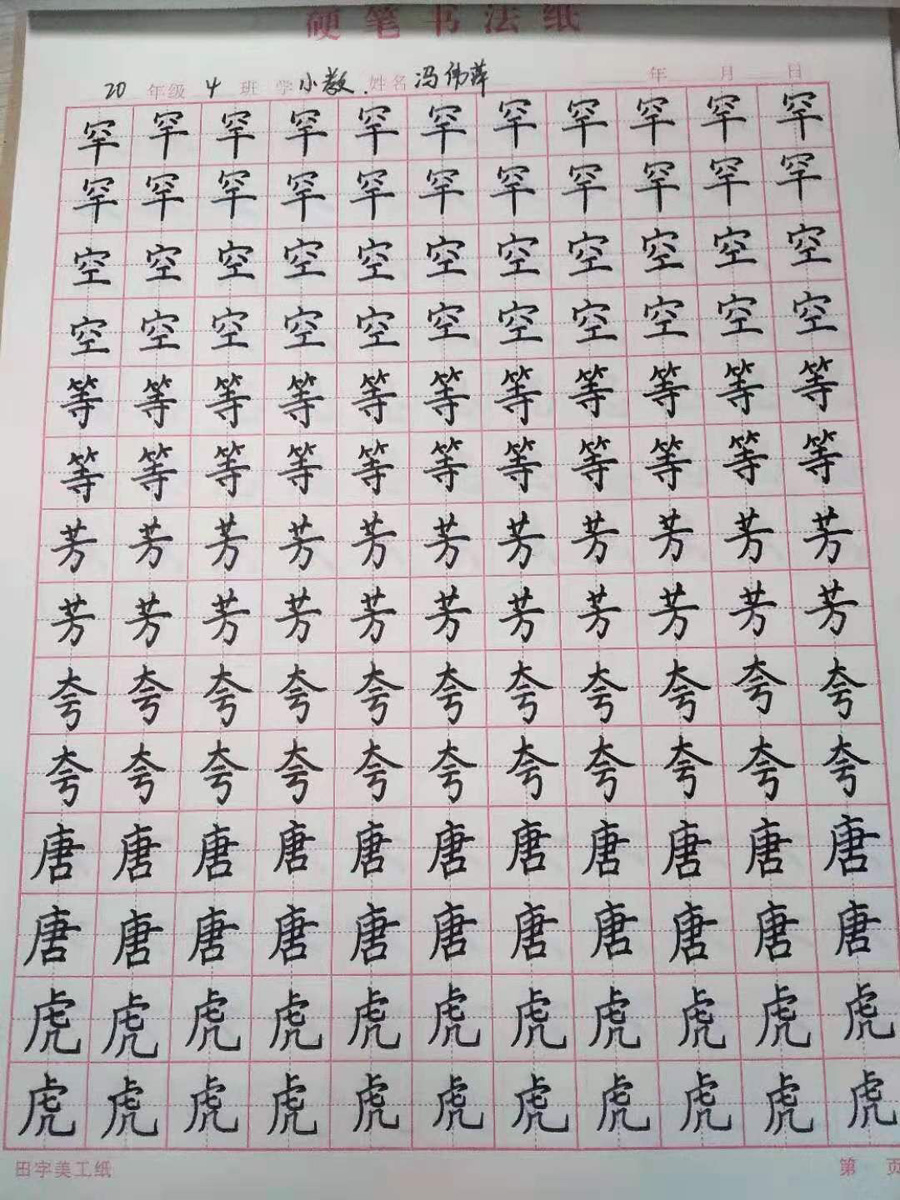 硬笔书法纸
20 年级 4 班 学小教 姓名 冯伟萍 年 月 日
罕罕罕罕罕罕罕罕罕罕罕
罕罕罕罕罕罕罕罕罕罕罕
空空空空空空空空空空空
空空空空空空空空空空空
等等等等等等等等等等等
等等等等等等等等等等等
芳芳芳芳芳芳芳芳芳芳芳
芳芳芳芳芳芳芳芳芳芳芳
夸夸夸夸夸夸夸夸夸夸夸
夸夸夸夸夸夸夸夸夸夸夸
唐唐唐唐唐唐唐唐唐唐唐
唐唐唐唐唐唐唐唐唐唐唐
虎虎虎虎虎虎虎虎虎虎虎
虎虎虎虎虎虎虎虎虎虎虎
田字美工纸 第 页